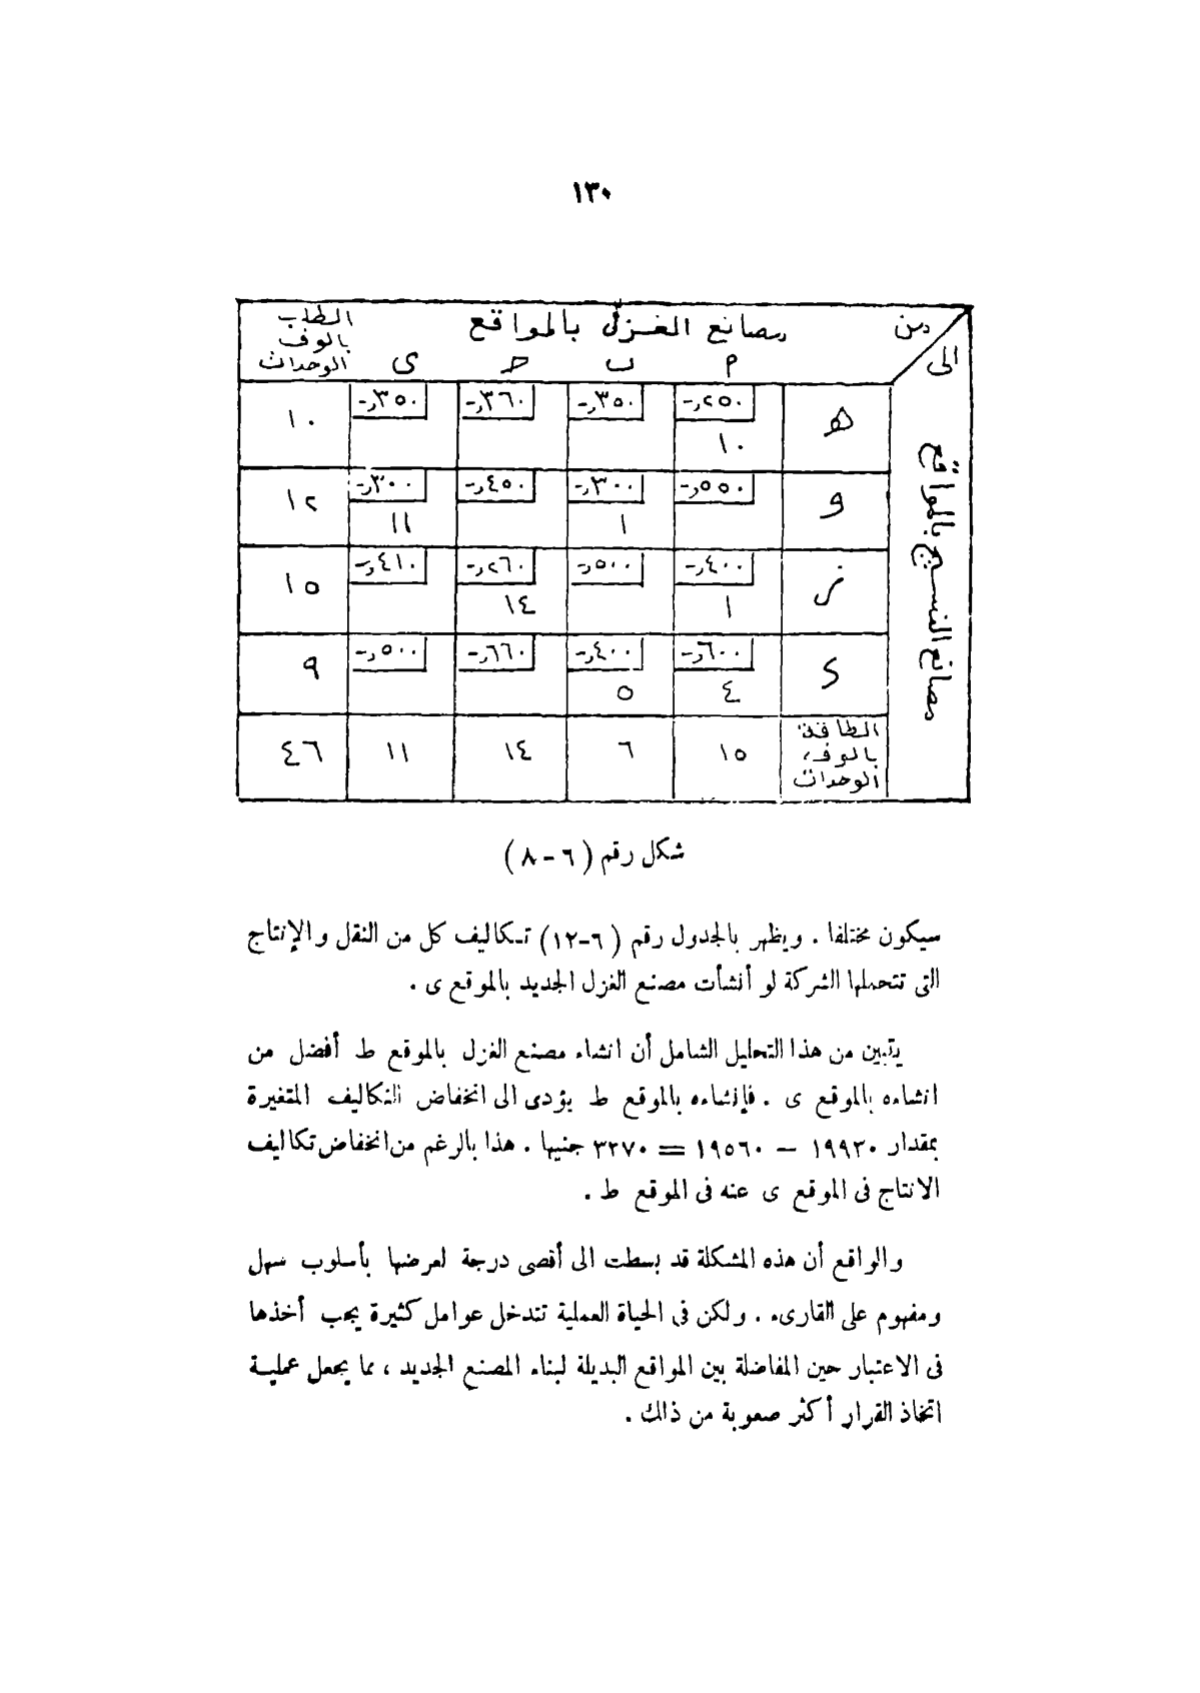 ١٣٠
من
الى
مصانع الغزل بالمواقع
م ب ح ى
الطلب بالوف الوحدات
مصانع النسيج بالمواقع
هـ ٢٥٠ر- ٣٥٠ر- ٣٦٠ر- ٣٥٠ر- ١٠
١٠
و ٥٥٠ر- ٣٠٠ر- ٤٥٠ر- ٣٠٠ر- ١٢
١ ١١
ز ٤٠٠ر- ٥٠٠ر- ٢٦٠ر- ٤١٠ر- ١٥
١ ١٤
ك ٦٠٠ر- ٤٠٠ر- ٦٦٠ر- ٥٠٠ر- ٩
٤ ٥
الطاقة بالوف الوحدات ١٥ ٦ ١٤ ١١ ٤٦
شكل رقم ( ٦ - ٨ )
سيكون مختلفا . ويظهر بالجدول رقم ( ٦-١٢) تكاليف كل من النقل والإنتاج
التى تتحملها الشركة لو أنشأت مصنع الغزل الجديد بالموقع ى .
يتبين من هذا التحليل الشامل أن انشاء مصنع الغزل بالموقع ط أفضل من
انشاءه بالموقع ى . فإنشاءه بالموقع ط يؤدى الى انخفاض التكاليف المتغيرة
بمقدار ١٩٩٣٠ — ١٩٥٦٠ = ٣٢٧٠ جنيها . هذا بالرغم من انخفاض تكاليف
الانتاج فى الموقع ى عنه فى الموقع ط .
والواقع أن هذه المشكلة قد بسطت الى أقصى درجة لعرضها بأسلوب سهل
ومفهوم على القارىء . ولكن فى الحياة العملية تتدخل عوامل كثيرة يجب أخذها
فى الاعتبار حين المفاضلة بين المواقع البديلة لبناء المصنع الجديد ، مما يجعل عملية
اتخاذ القرار أكثر صعوبة من ذلك .